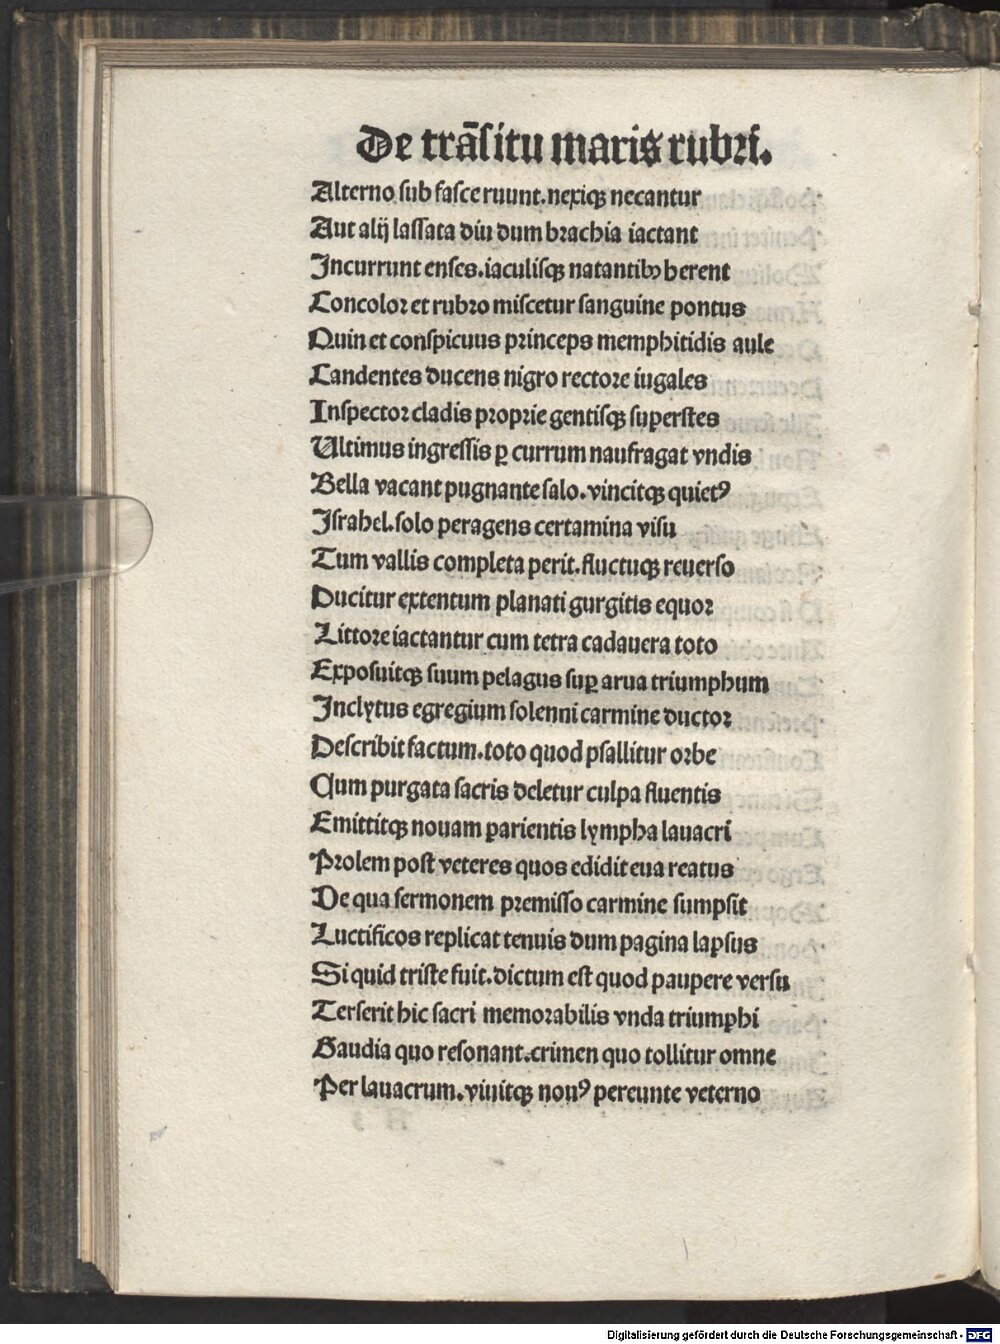 De trāſitu maris rubri.
Alterno ſub faſce ruunt. nexiqꝫ necantur
Aut alij laſſata diu dum brachia iactant
Incurrunt enſes. iaculiſqꝫ natantibꝰ herent
Concolor et rubro miſcetur ſanguine pontus
Quin et conſpicuus princeps memphitidis aule
Candentes ducens nigro rectore iugales
Inſpector cladis proprie gentiſqꝫ ſuperſtes
Ultimus ingreſſis ꝑ currum naufragat vndis
Bella vacant pugnante ſalo. vincitqꝫ quietꝰ
Iſrahel. ſolo peragens certamina viſu
Tum vallis completa perit. fluctuqꝫ reuerſo
Ducitur extentum planati gurgitis equor
Littore iactantur cum tetra cadauera toto
Expoſuitqꝫ ſuum pelagus ſuꝑ arua triumphum
Inclytus egregium ſolenni carmine ductor
Deſcribit factum. toto quod pſallitur orbe
Cum purgata ſacris deletur culpa fluentis
Emittitqꝫ nouam parientis lympha lauacri
Prolem poſt veteres quos edidit eua reatus
De qua ſermonem premiſſo carmine ſumpſit
Luctificos replicat tenuis dum pagina lapſus
Si quid triſte fuit. dictum eſt quod paupere verſu
Terſerit hic ſacri memorabilis vnda triumphi
Gaudia quo reſonant. crimen quo tollitur omne
Per lauacrum. viuitqꝫ nouꝰ pereunte veterno
Digitalisierung gefördert durch die Deutsche Forschungsgemeinschaft - DFG